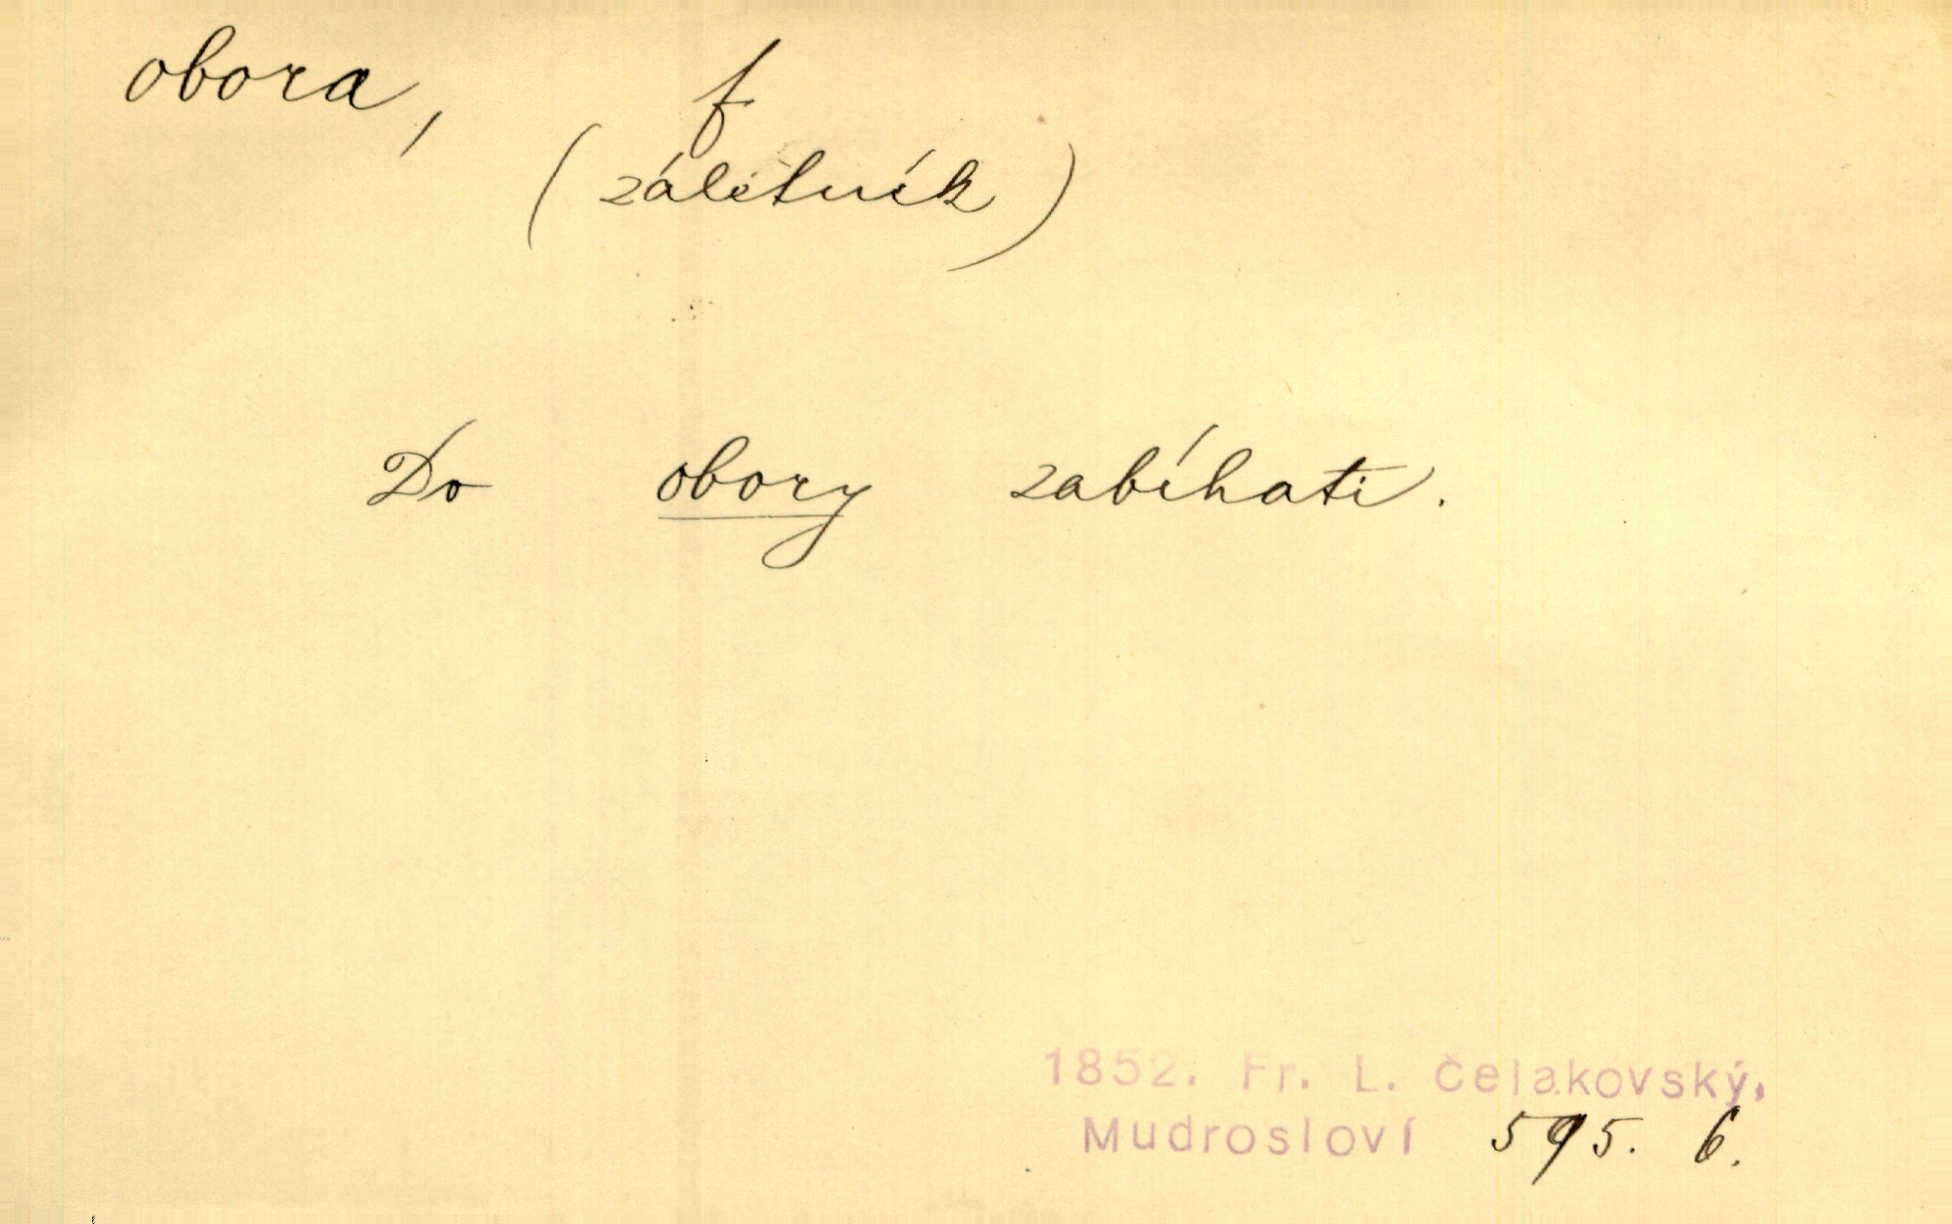 obora, f
(záletník)
Do obory zabíhati.
1852. Fr. L. Čelakovský,
Mudrosloví 595. 6.